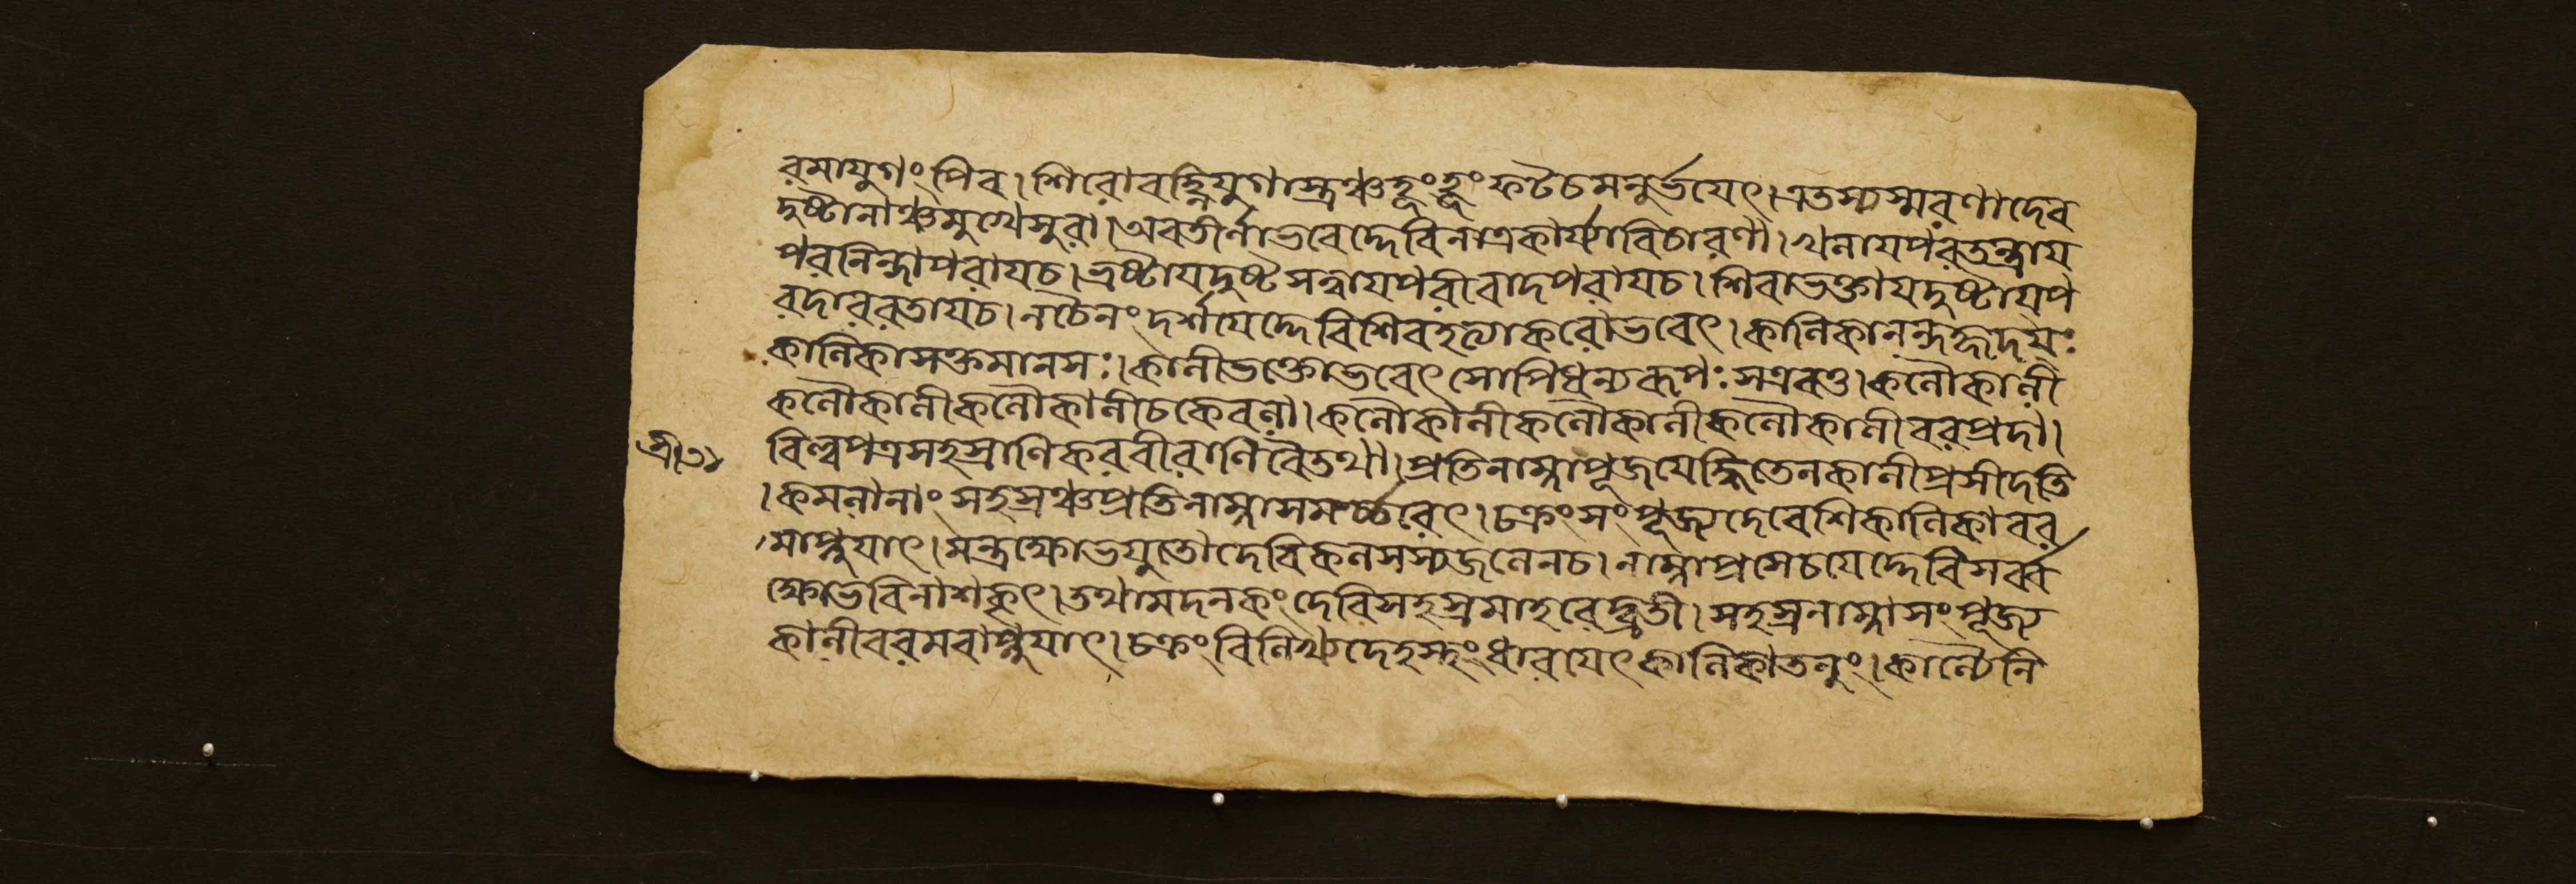 রমাযুগং পিব। শিরোবহ্নিযুগাস্ত্রঞ্চহূংহূংফটচমনুর্ভযেৎ। এতস্যস্মরণাদেব
দুষ্টানাঞ্চমুখেসুরা। অবতীর্নাভবেদ্দেবিনাত্রকার্য্যাবিচারণা। খলাযপরতন্ত্রায
পরনিন্দাপরাযচ। ভ্রষ্টাযদুষ্টসত্বাযপরীবাদপরাযচ। শিবাভক্তাযদুষ্টাযপ
রদাররতাযচ। নচৈনংদর্শযেদ্দেবিশিবহত্যাকরোভবেৎ। কালিকানন্দহৃদযঃ
কালিকাসক্তমানসঃ। কালীভক্তোভবেৎসোপিধন্যরূপঃসএবতু। কলৌকালী
কলৌকালীকলৌকালীচকেবলা। কলৌকালীকলৌকালীকলৌকালীবরপ্রদা।
বিল্বপত্রসহস্রাণিকরবীরাণিবৈতথা। প্রতিনাম্নাপূজযেদ্ধিতেনকালীপ্রসীদতি
। কমলানাংসহস্রঞ্চপ্রতিনাম্নাসমর্চ্চযেৎ। চক্রংসংপূজ্যদেবেশিকালিকাবর
মাপ্নুযাৎ। মন্ত্রক্ষোভযুতোদেবিকলসস্যজলেনচ। নাম্নাপ্রসেচযেদ্দেবিসর্ব্ব
ক্ষোভবিনাশকৃৎ। তথামদনকংদেবিসহস্রমাহরেদ্ব্রতী। সহস্রনাম্নাসংপূজ্য
কালীবরমবাপ্নুযাৎ। চক্রংবিলিখ্যদেহস্থংধারযেৎকালিকাতনুং। কাল্যৈনি